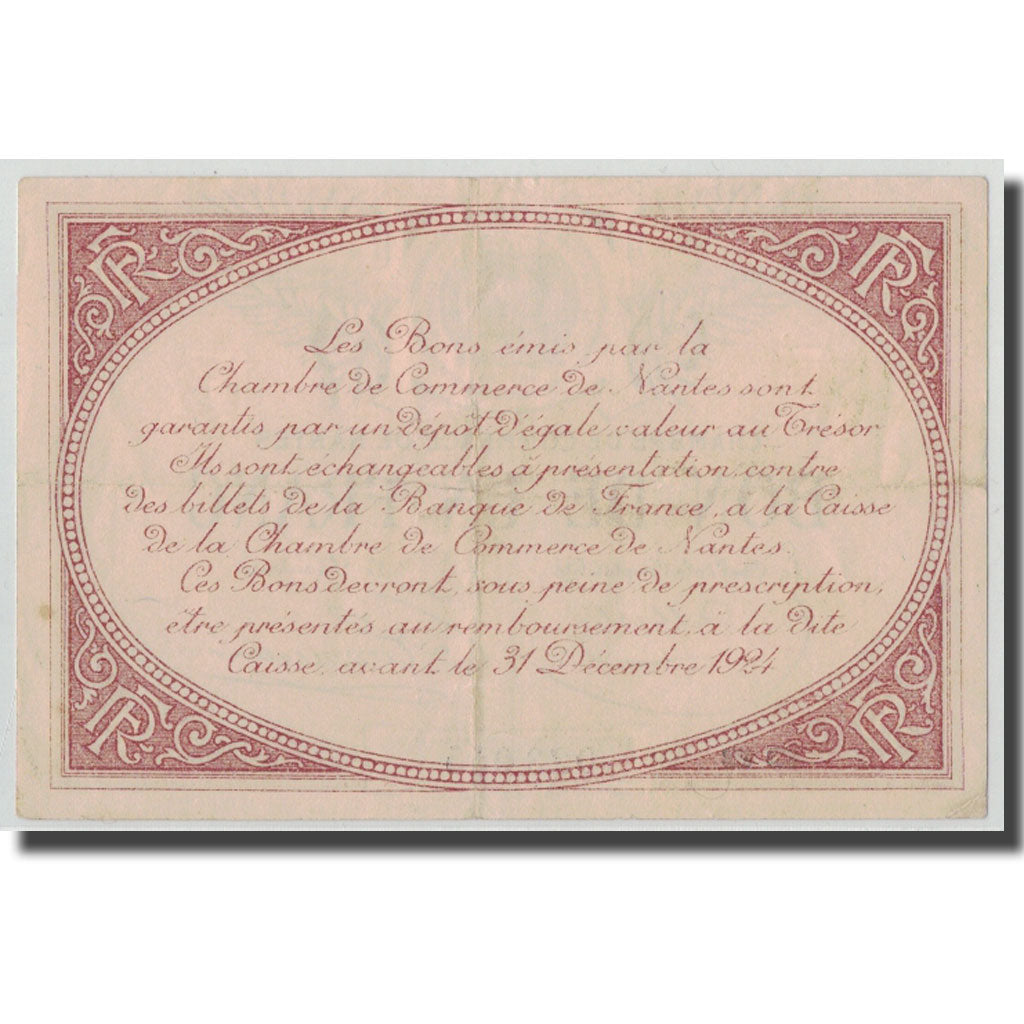 Les Bons émis par la
Chambre de Commerce de Nantes sont
garantis par un dépôt d'égale valeur au Trésor
Ils sont échangeables à présentation contre
des billets de la Banque de France, à la Caisse
de la Chambre de Commerce de Nantes.
Ces Bons devront, sous peine de prescription,
être présentés au remboursement, à la dite
Caisse, avant le 31 Décembre 1924
RF
RF
RF
RF